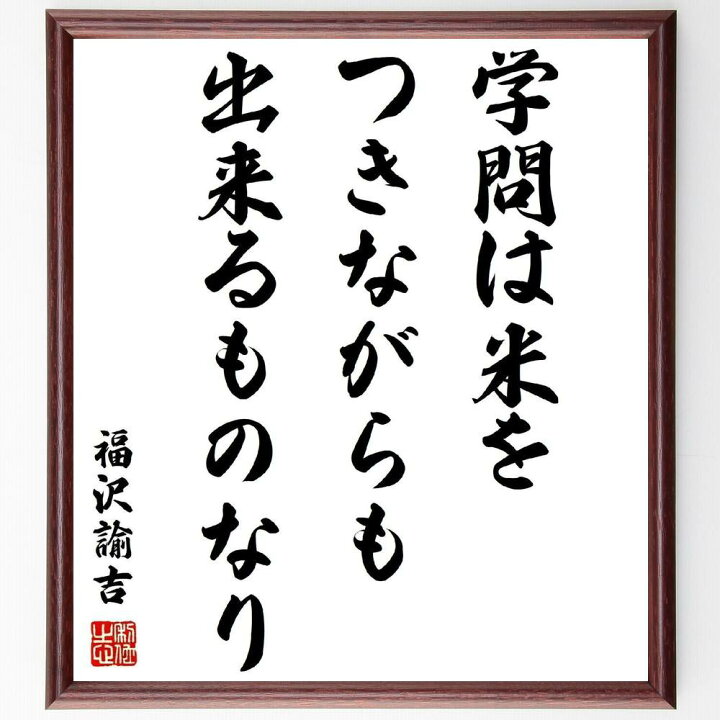 学問は米を
つきながらも
出来るものなり
福沢諭吉